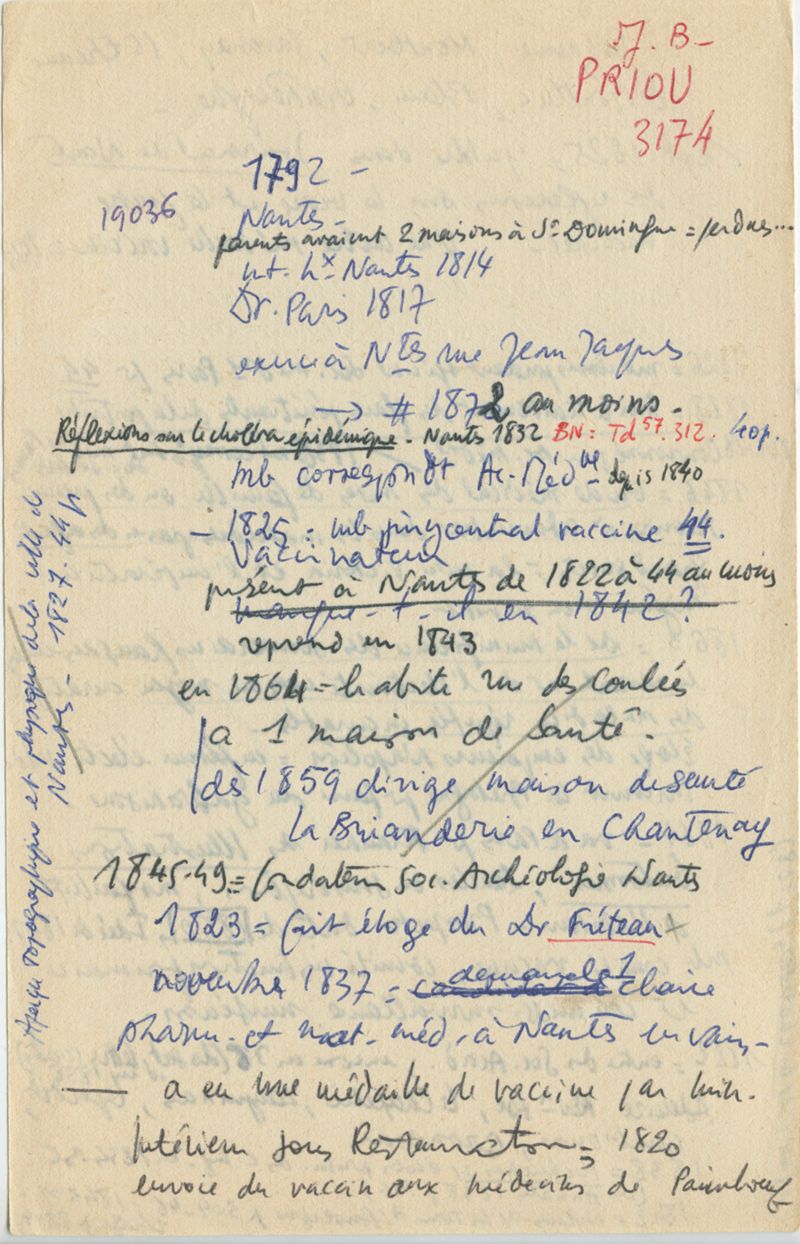 J. B-
PRIOU
3174
1792 -
19036
Nantes -
parents avaient 2 maisons à St Domingue = perdues...
int. hx Nantes 1814
Dr. Paris 1817
exerce à Ntes rue Jean Jaques
→ # 1872 au moins.
Réflexions sur le choléra épidémique. Nantes 1832 BN: Td 57. 312. 40p.
mb correspondt Ac. Méd depuis 1840
- 1825 = mb central vaccine 44.
Vaccinateur
présent à Nantes de 1822 à 44 au moins
manque-t-il en 1842 ?
reprend en 1843
en 1864 = habite rue des Coulées
a 1 maison de Santé.
dès 1859 dirige maison de santé
la Brianderie en Chantenay
1845-49 = fondateur Soc. Archéologie Nantes
1823 = fait éloge du Dr Fréteau
novembre 1837 = demande 1 chaire
pharm. et mat. méd. à Nantes en vain -
— a eu une médaille de vaccine par Min.
Intérieur sous Restauration = 1820
envoie du vaccin aux médecins de Paimboeuf
topographique et physique de la ville de
Nantes - 1827. 44 p